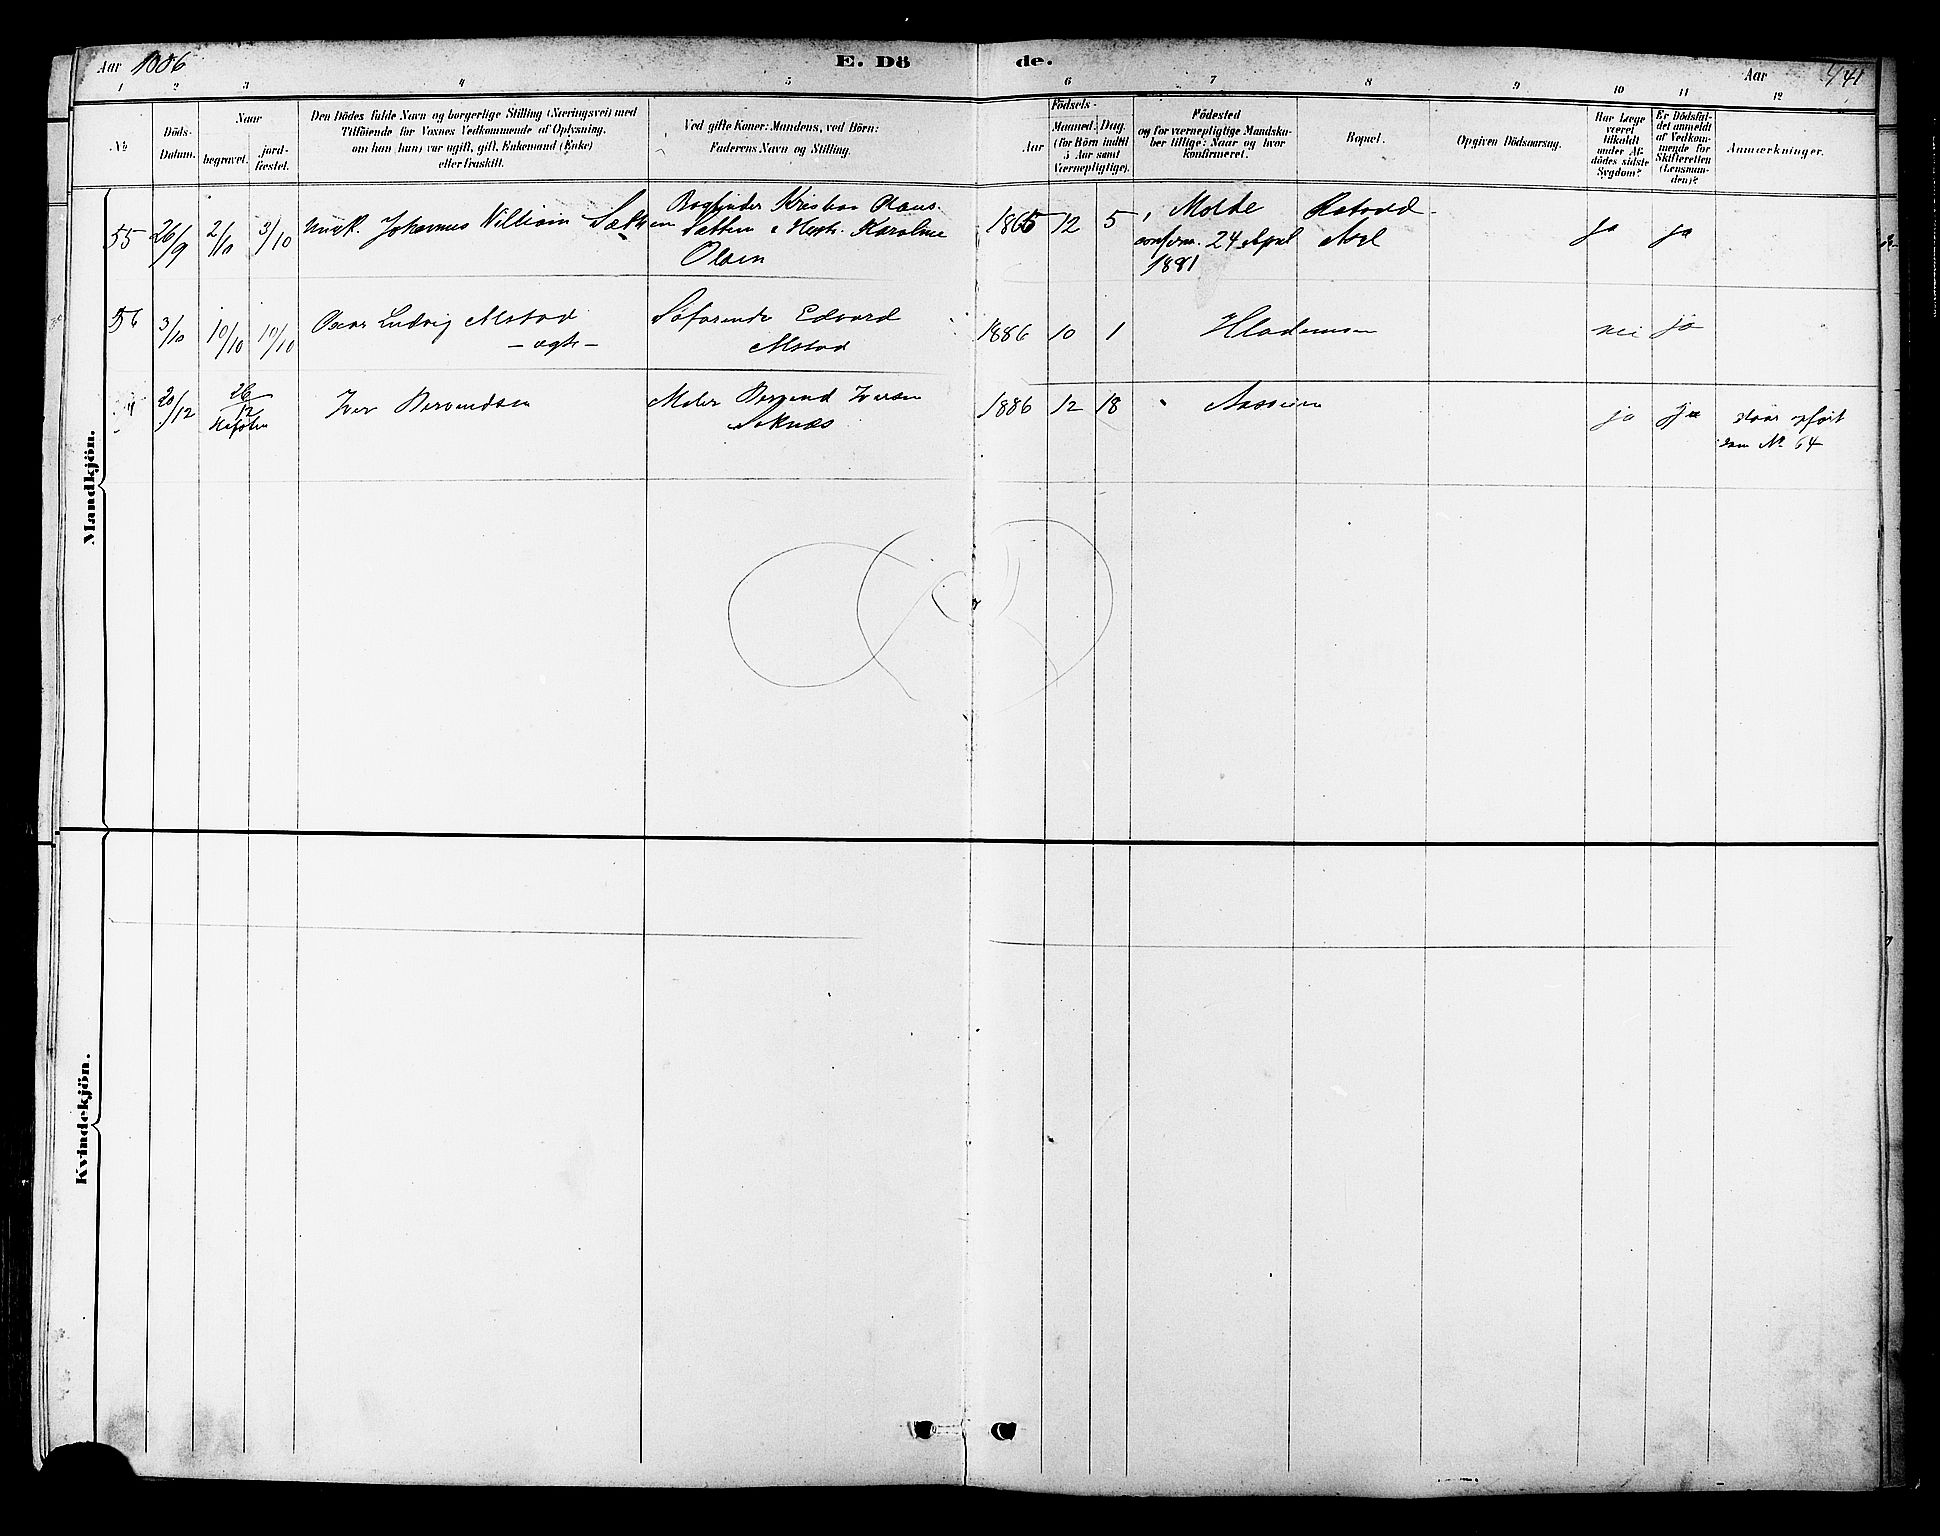 Aar 1886
E. Dö
de.
Aar 441
1 2 3 4 5 6 7 8 9 10 11 12
No
Döds-
Datum.
Naar
begravet.
jord-
fæstet.
Den Dödes fulde Navn og borgerlige Stilling (Næringsvei) med
Tilföiende for Voxnes Vedkommende af Oplysning,
om han (hun) var ugift, gift, Enkemand (Enke)
eller fraskilt.
Ved gifte Koner: Mandens, ved Börn:
Faderens Navn og Stilling.
Födsels-
Aar
Maaned. Dag.
(for Börn indtil
5 Aar samt
Værnepligtige).
Födested
og for værnepligtige Mandska-
ber tillige: Naar og hvor
konfirmeret.
Bopæl.
Opgiven Dödsaarsag.
Har Læge
været
tilkaldt
under Af-
dödes sidste
Sygdom?
Er Dödsfal-
det anmeldt
af Vedkom-
mende for
Skifteretten
(Lensman-
den)?
Anmærkninger.
Mandkjön.
55 26/9 2/10 3/10 Johannes William Sætten
Bogbinder Kristian Olaus
Sætten Karoline
Olsen
1865 12 5 Molde
confirm. 24 April
1881
ja ja
56 3/10 10/10 10/10 Oscar Ludvig Alstad
- ægte -
Söfarende Edvard
Alstad
1886 10 1 nei ja
20/12 26/12 Iver Berendsen
Maler Berend Iversen
Soknæs
1886 12 18 Aasveien ja ja
staar opfört
som No 64
Kvindekjön.